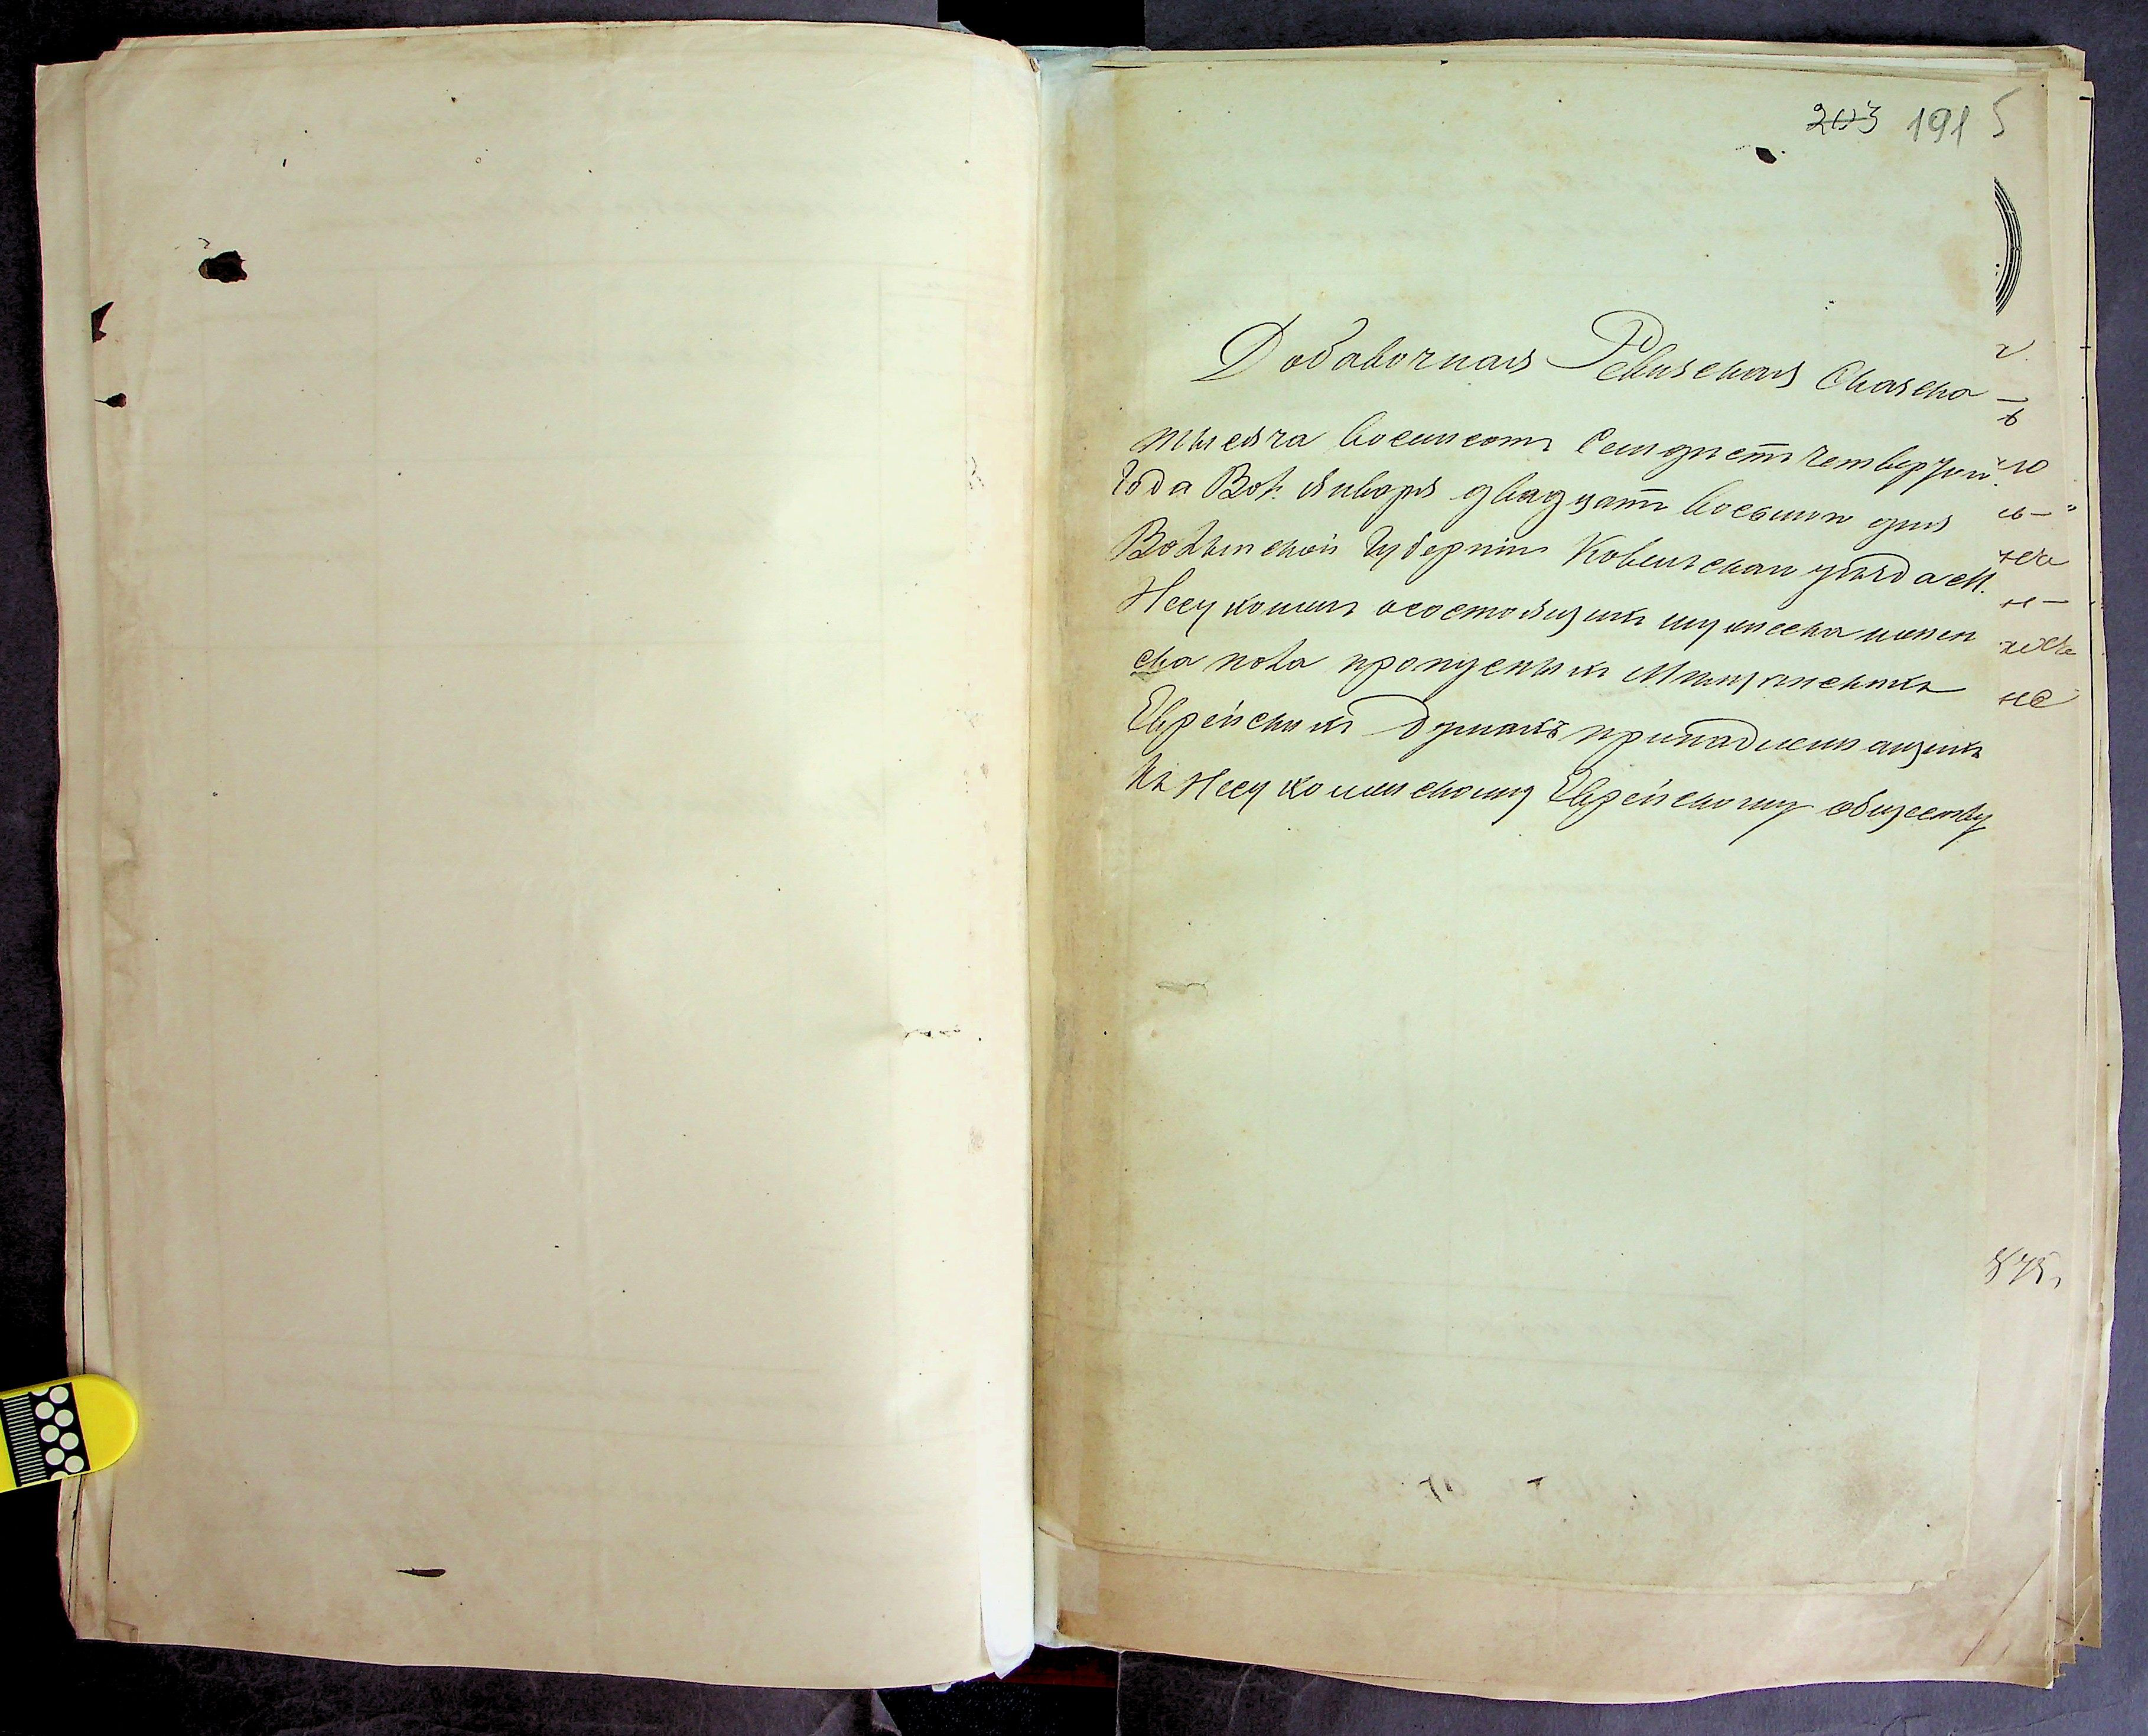 203 191 5
Добавочная Ревизская Сказка
тысяча восемсотъ Семдесятъ четвертои
Года Вол. января двадцать восьмои дня
Волынской Губернiи Ковельскаи уѣзда М.
Несухоижъ осостоящихъ мужеска иженс
ска пола пропусныхъ Мѣщанскихъ
Еврейскихъ душахъ принадлежащихъ
Къ Несухоижскому Еврейскому обществу